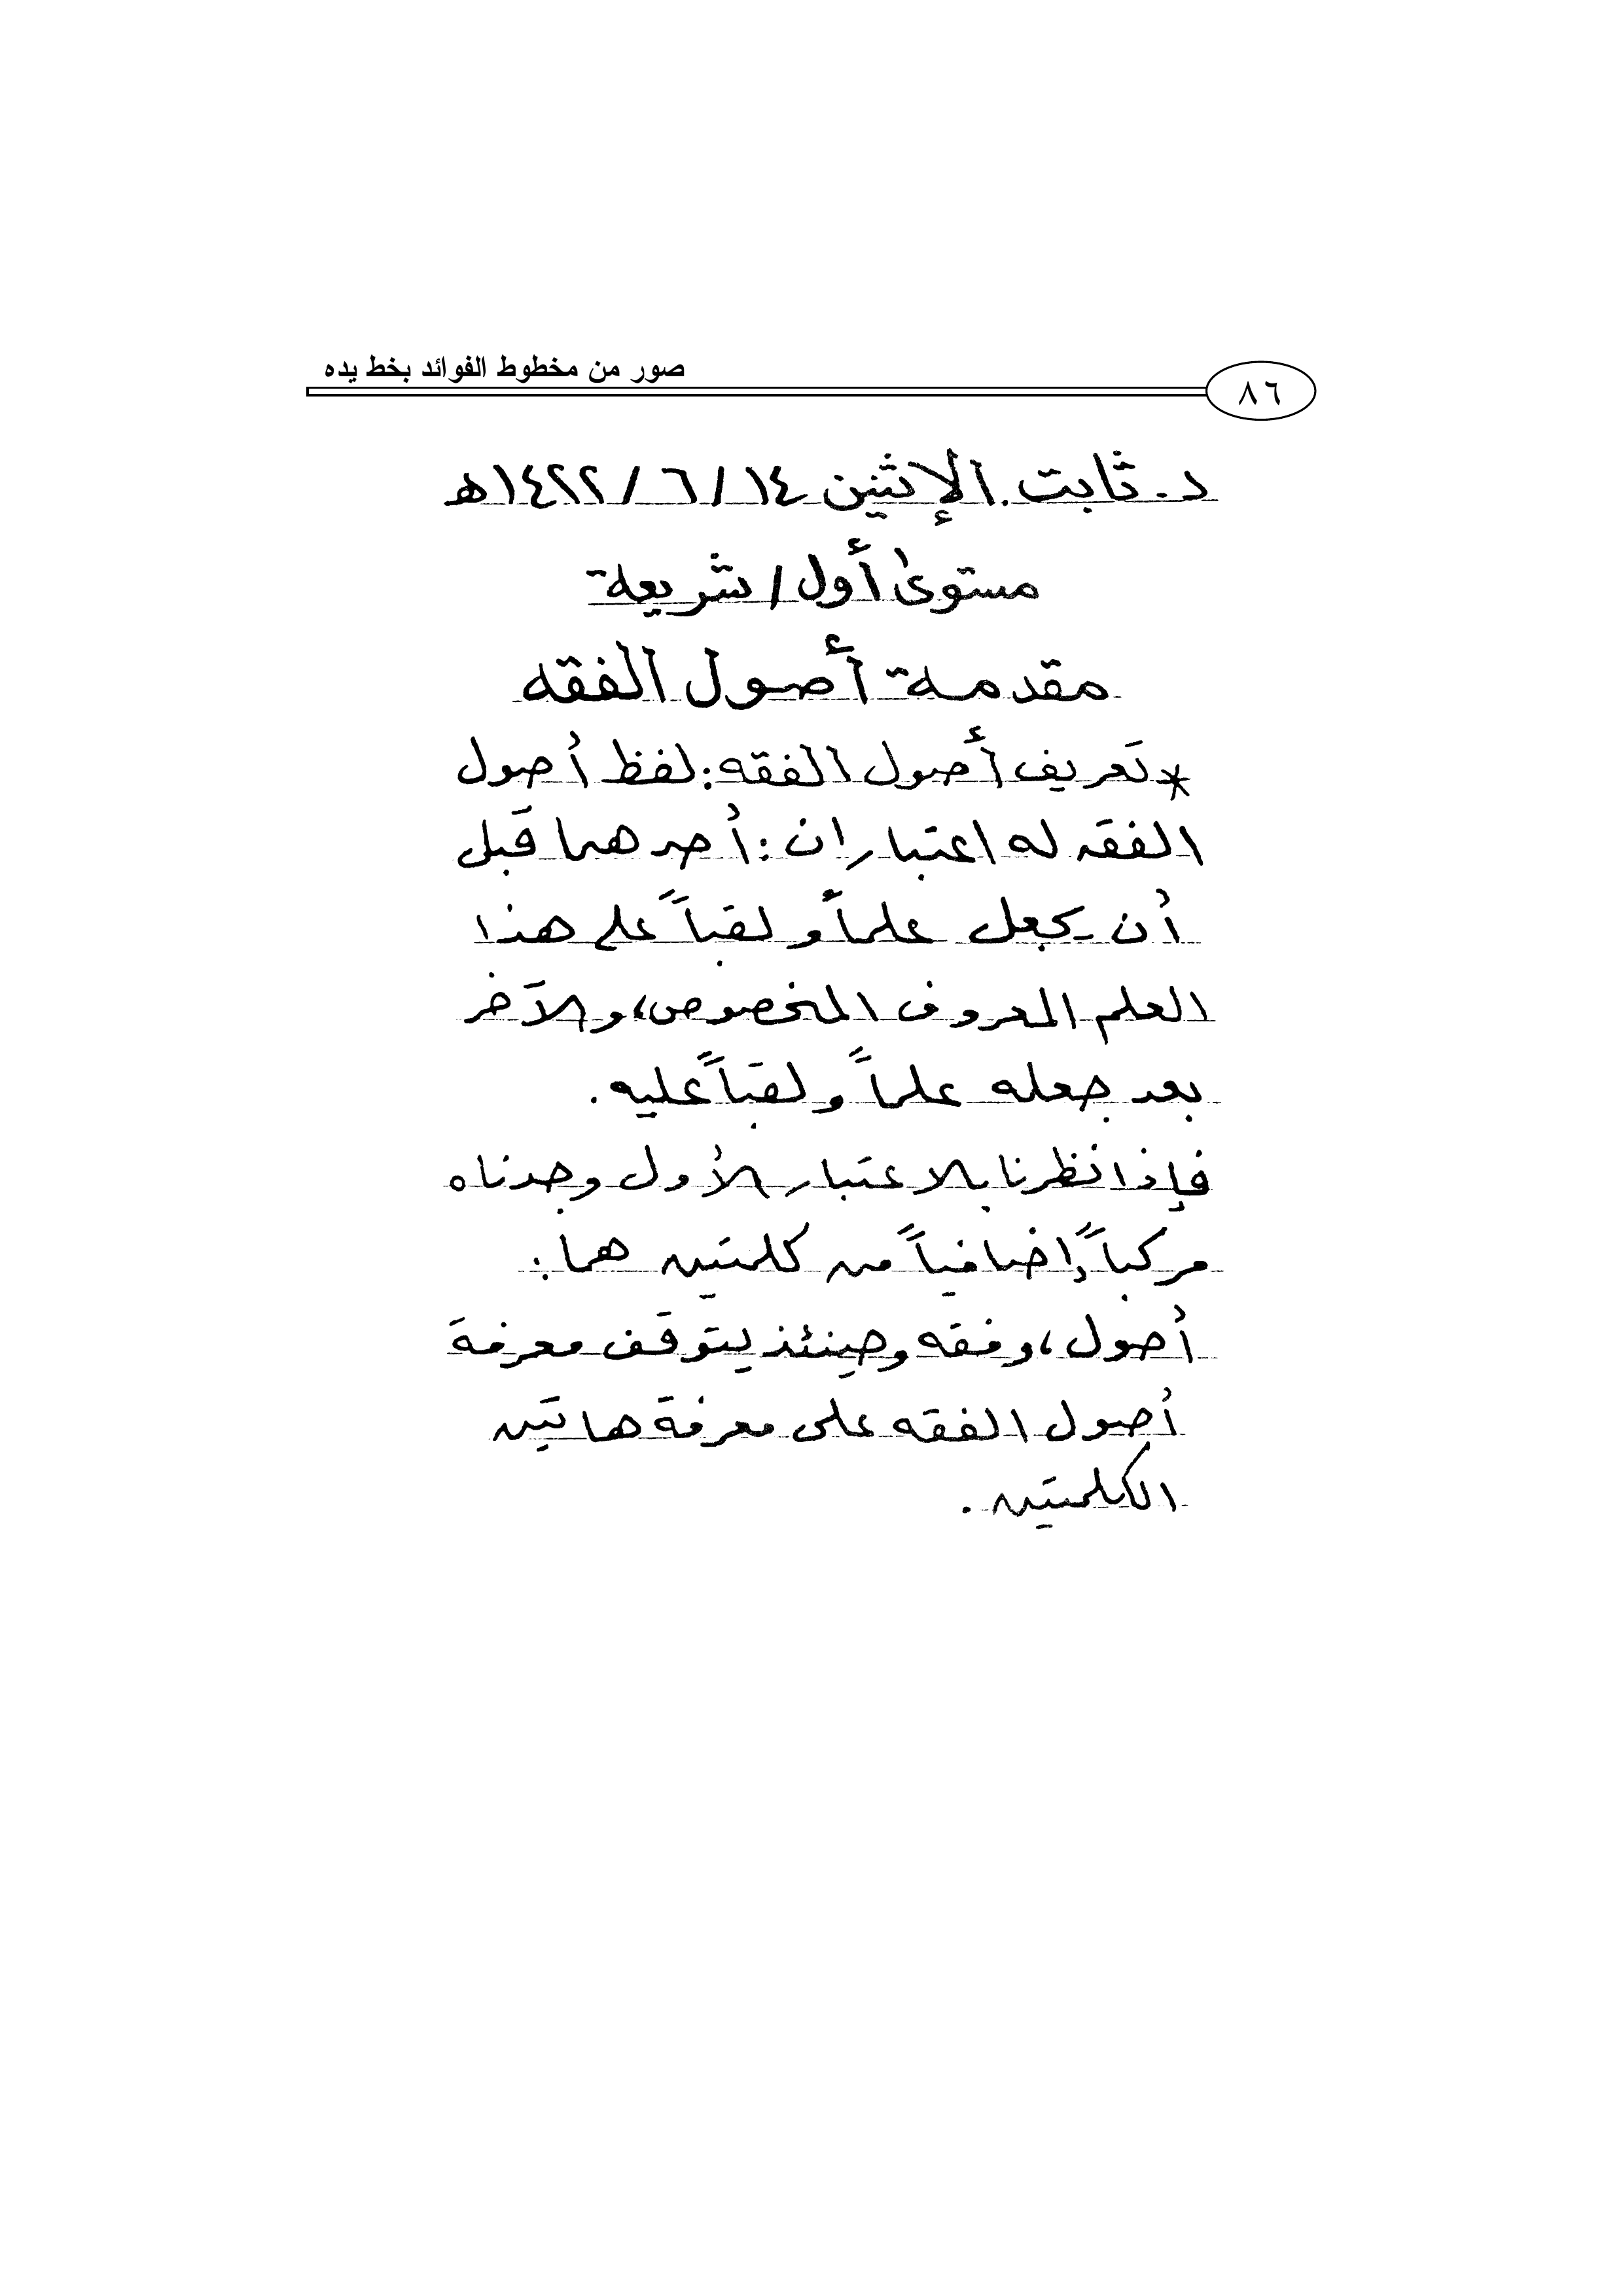 صور من مخطوط الفوائد بخط يده
٨٦
د. ثابت. الإثنين ١٤ / ٦ / ١٤٢٢هـ
مستوىٰ أول / شريعة
مقدمة أصول الفقه
* تعريف أصول الفقه: لفظ أصول
الفقه له اعتباران: أحدهما قبل
أن يجعل علماً ولقباً على هذا
العلم المعروف المخصوص، والآخر
بعد جعله علماً ولقباً عليه.
فإذا نظرنا بالاعتبار الأول وجدناه
مركباً إضافياً من كلمتين هما:
أصول، وفقه وحينئذ يتوقف معرفة
أصول الفقه على معرفة هاتين
الكلمتين.